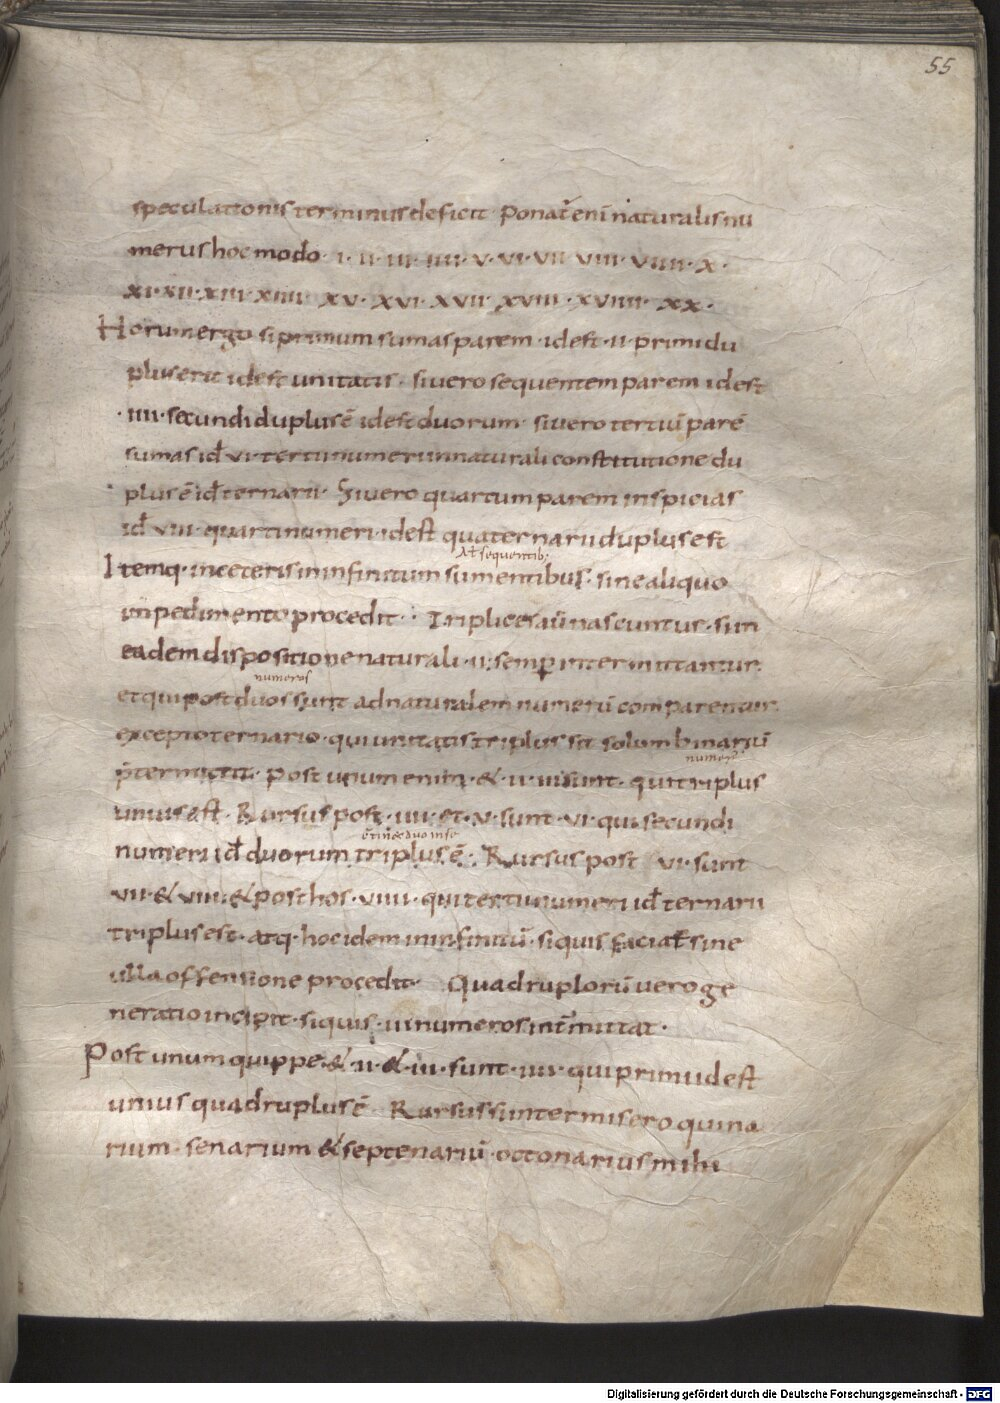 55
speculationis terminus deficit · Ponat̄ enī naturalis nu
merus hoc modo · i · ii · iii · iiii · v · vi · vii · viii · viiii · x ·
xi · xii · xiii · xiiii · xv · xvi · xvii · xviii · xviiii · xx ·
Horum ergo si primum sumas parem · idest · ii · primi du
plus erit idest unitatis · si vero sequentem parem idest
· iiii · secundi duplus ē idest duorum · si vero tertiū parē
sumas id÷ vi · tertii numeri in naturali constitutione du
plus ē id÷ ternarii · Si vero quartum parem inspicias
id÷ viii · quarti numeri · idest quaternarii duplus est
At sequentib;
Itemq · in ceteris in infinitum sumentibus · sine aliquo
inpedimento procedit · Triplices aū nascuntur · si in
eadem dispositione naturali · ii · semp intermittantur
numeros
et qui post duos sunt ad naturalem numerū comparentur
excepto ternario · qui unitatis triplus sit solum binariū
numeri
p̄termittit · Post unum enim · & ii · iii sunt · qui triplus
unius est · Rursus post · iiii · et · v · sunt · vi · qui secundi
numeri id÷ duorum triplus ē · Rursus post vi · sunt
vii · & viii · & post hos · viiii · qui tertii numeri id÷ ternarii
triplus est · atq · hoc idem in infinitū · si quis faciat sine
ulla offensione procedit · Quadruplorū vero ge
neratio incipit · si quis · iii numeros int̄mittat ·
Post unum quippe · & ii · & · iii · sunt · iiii · qui primi idest
unius quadruplus ē Rursus si intermisero quina
rium · senarium & septenariū · octonarius mihi
Digitalisierung gefördert durch die Deutsche Forschungsgemeinschaft - DFG